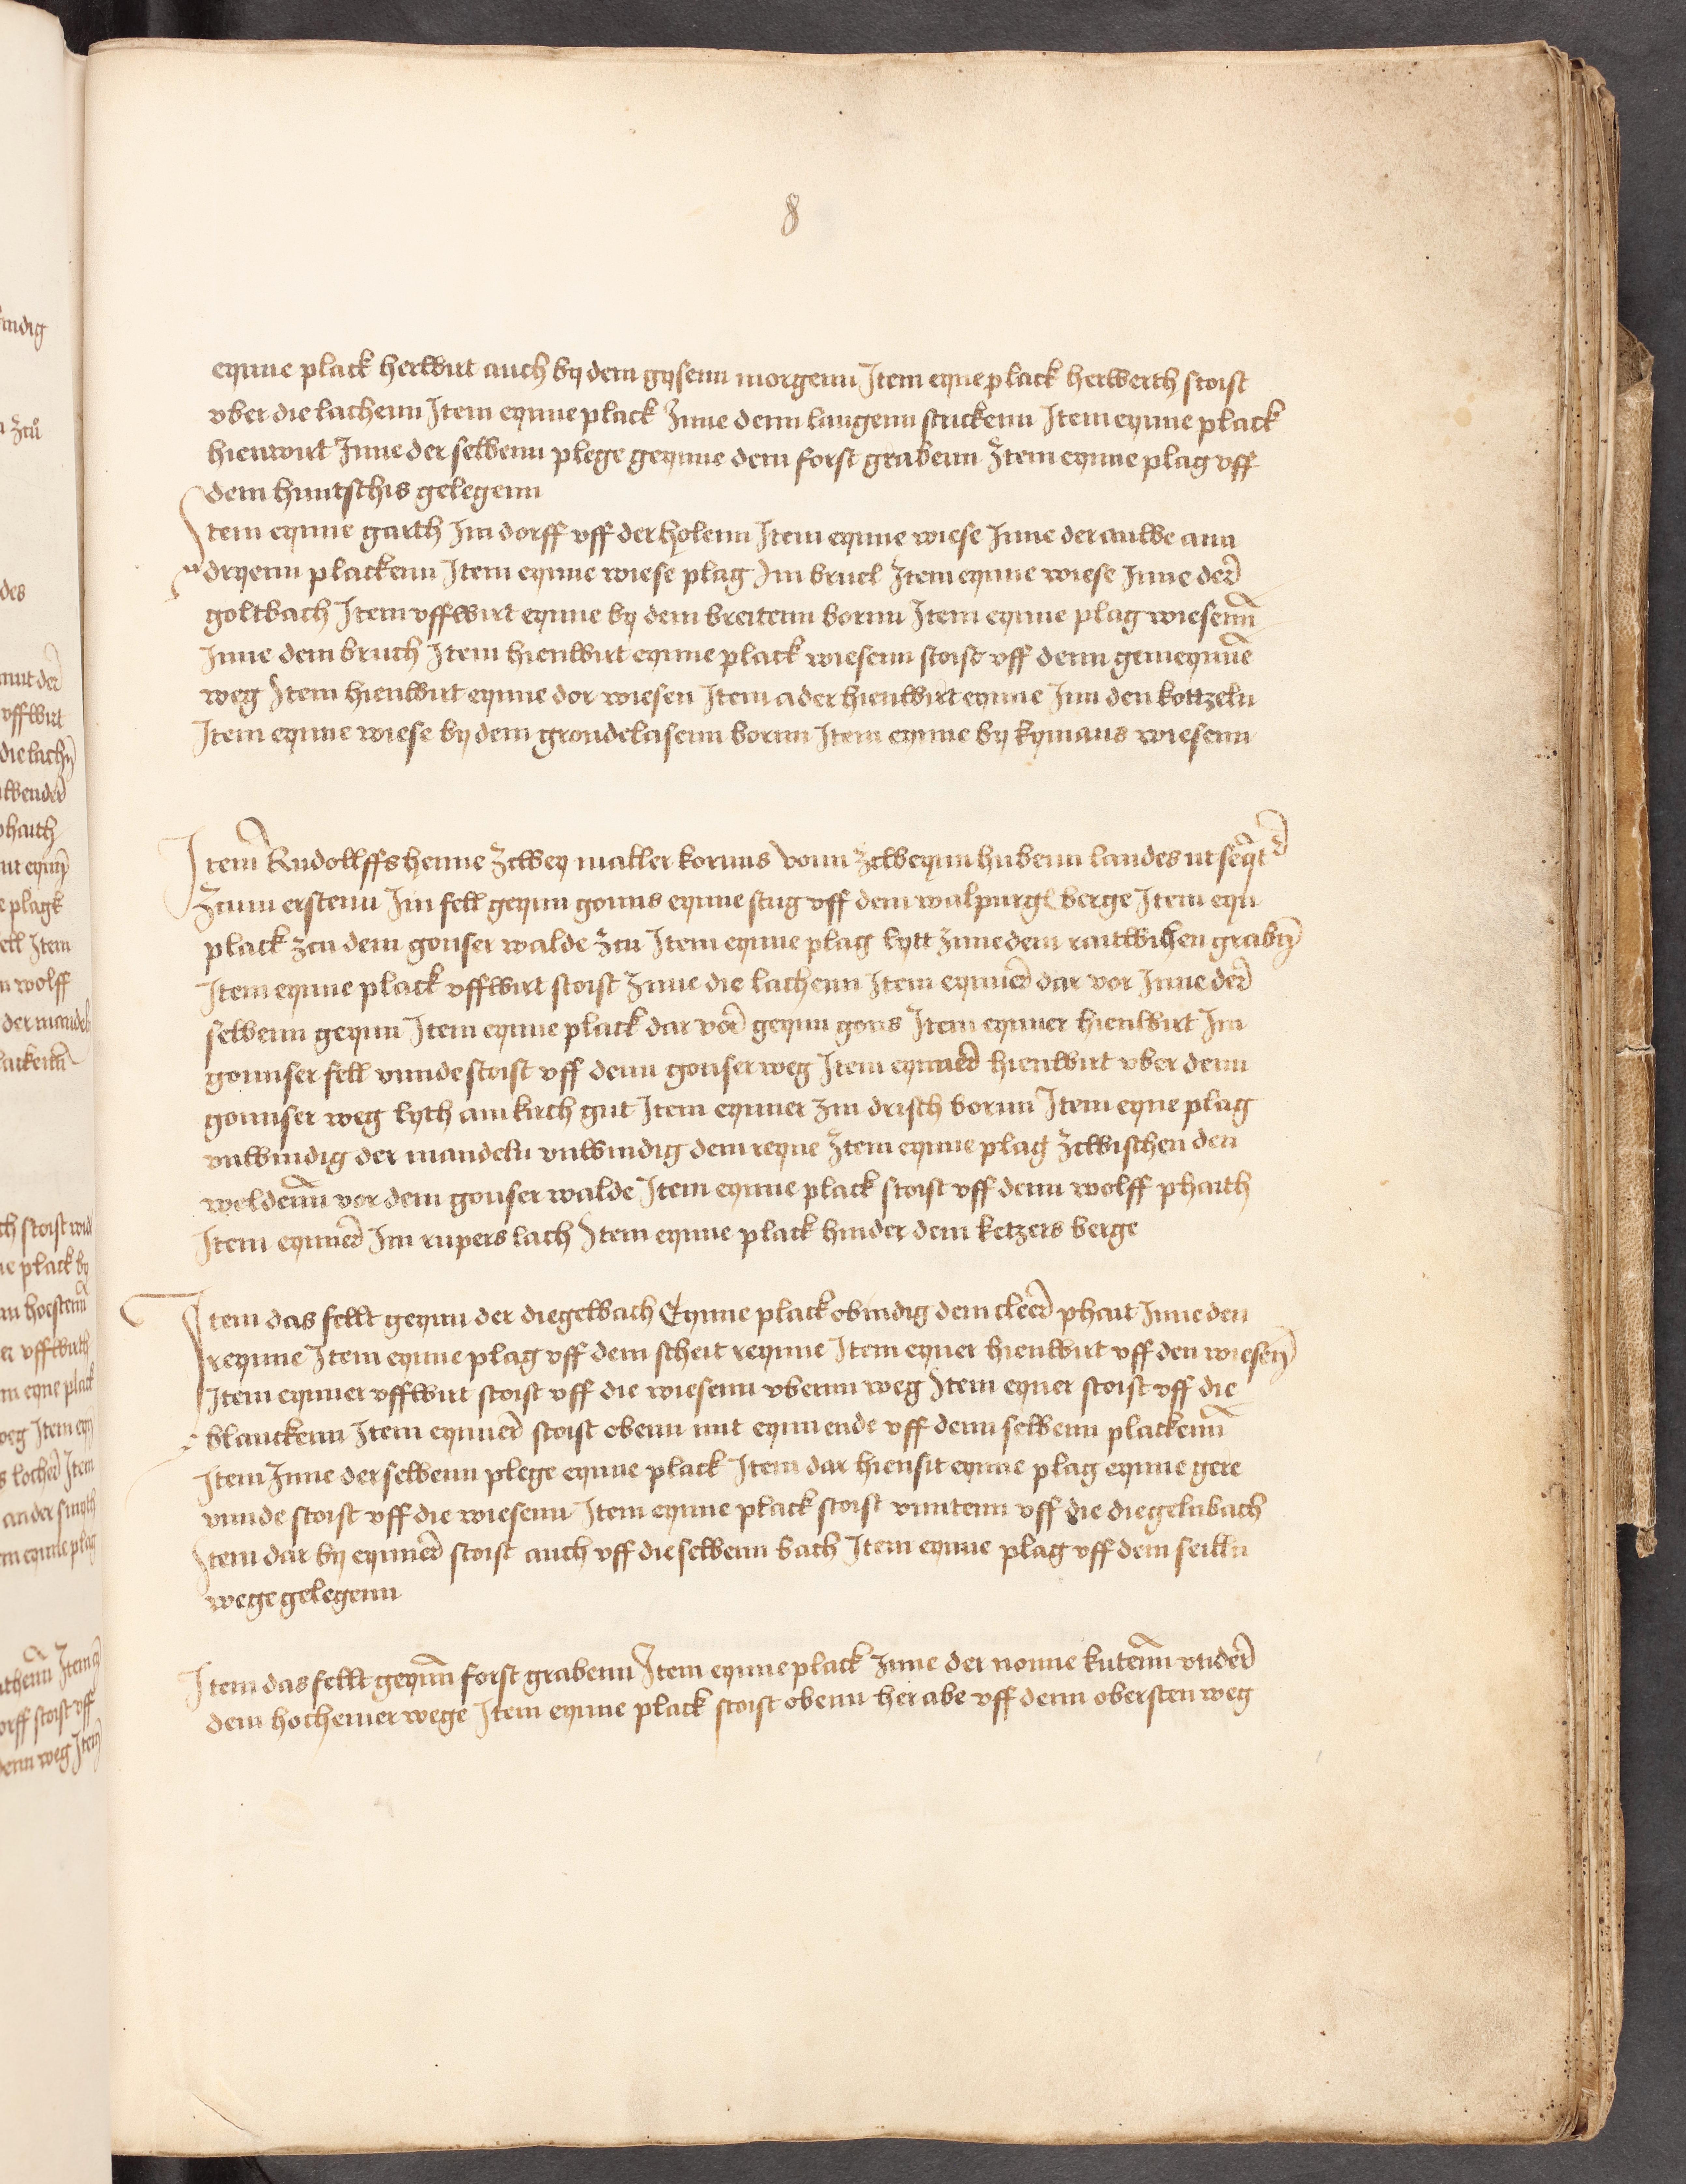 8
eynne plack herwirt auch by dem gysenn morgenn Item eyne plack herwerth stoist
vber die lachenn Item eynne plack Inne denn langenn stuckenn Item eynne plack
hienwirt Inne der selbenn plege geynne dem forst grabenn Item eynne plag vff
dem huntschis gelegenn
Item eynne garth Im dorff vff der holenn Item eynne wiese Inne der auwe ann
dryenn plackenn Item eynne wiese plag Im bruel Item eynne wiese Inne der
goltbach Item vffwirt eynne by dem breitenn bornn Item eynne plag wiesenn
Inne dem bruch Item hienwirt eynne plack wiesenn stoist vff denn gemeynne
weg Item hienwirt eynne dor wiesen Item ader hienwirt eynne Inn den kottzeln
Item eynne wiese by dem grondelasenn bornn Item eynne by kymans wiesenn
Item Rudollffs henne Zcwey malter kornns vonn Zcweynn hubenn landes ut seqt
Zcum erstenn Im fell geynn gonns eynne stug vff dem walpurg berge Item eyn
plack zcu dem gonser walde zcu Item eynne plag lytt Inne dem raitwihen graby
Item eynne plack vffwirt stoist Inne die lachenn Item eynner dar vor Inne der
selbenn geynn Item eynne plack dar vor geynn gons Item eynner hienwirt Im
gonnser fell vnnde stoist vff denn gonser weg Item eynner hienwirt vber denn
gonnser weg lyth am kirch gut Item eynner zm drisch bornn Item eyne plag
vnwindig der mandeln vnwindig dem reyne Item eynne plag Zcwischen den
weldenn vor dem gonser walde Item eynne plack stoist vff denn wolff phaith
Item eynner Im rupers lach Item eynne plack hinder dem ketzers berge
Item das fellt geynn der diegelbach Eynne plack obindig dem cleer phait Inne den
reynne Item eynne plag vff dem scheit reynne Item eyner hienwirt vff den wiesen
Item eynner vffwirt stoist vff die wiesenn vbernn weg Item eyner stoist vff die
blanckenn Item eynner stoist obenn mit eynn ende vff denn selbenn plackenn
Item Inne der selbenn plege eynne plack Item dar hiensit eynne plag eynne gere
vnnde stoist vff die wiesenn Item eynne plack stoist vnntenn vff die diegelnbach
Item dar by eynner stoist auch vff die selbenn bach Item eynne plag vff dem seilln
wege gelegenn
Item das fellt geynn forst grabenn Item eynne plack Inne der nonne kutenn vnder
dem hochemer wege Item eynne plack stoist obenn her abe vff denn obersten weg